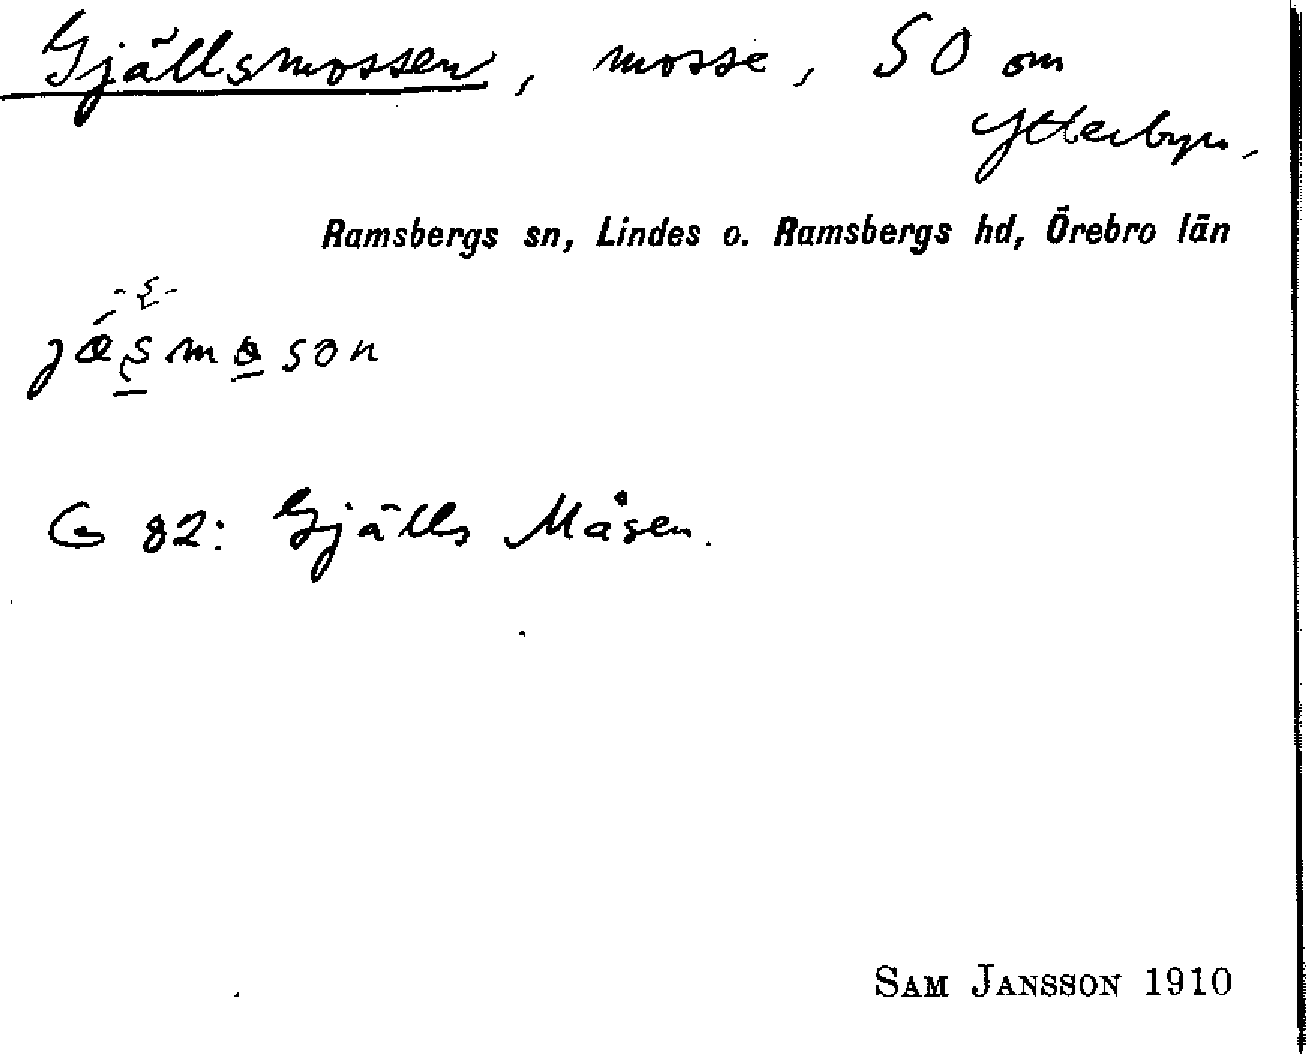 Gjällsmossen, mosse, SO om
Ytterbyn.
Ramsbergs sn, Lindes o. Ramsbergs hd, Örebro län
G 82: Gjälls Måsen.
SAM JANSSON 1910